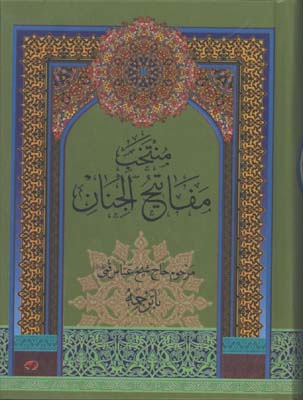 منتخب
مَفاتيحُ الجِنانْ
مرحوم حاج شیخ عباس قمی
با ترجمه